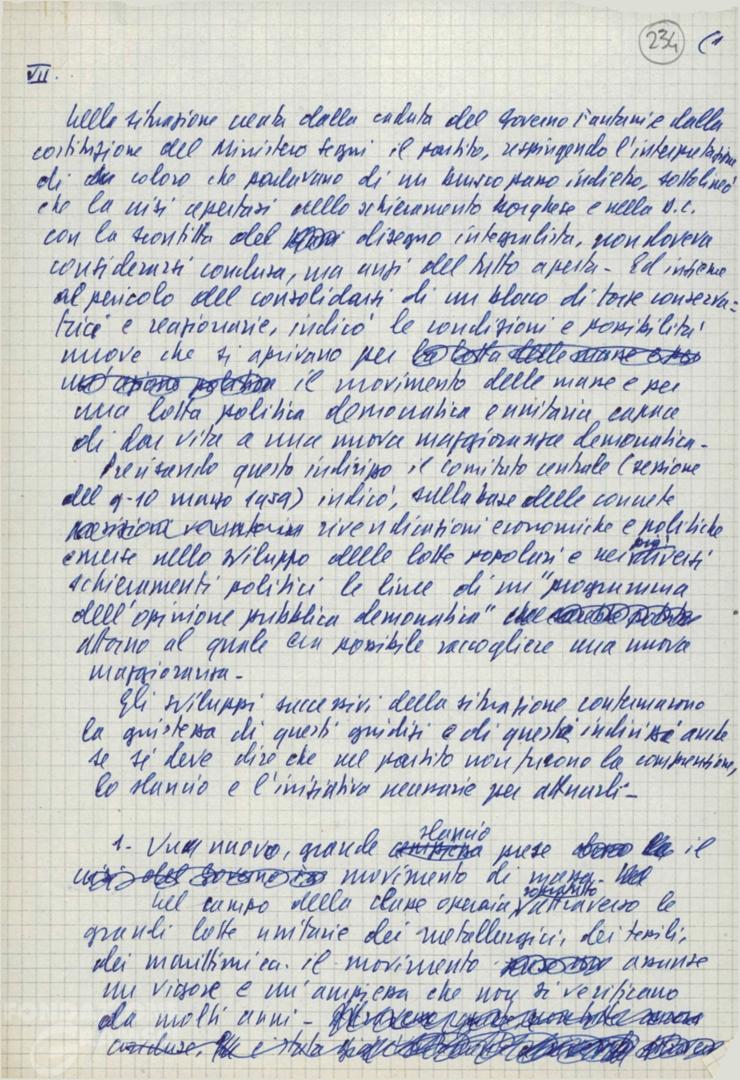 234 (1
VII.
Nella situazione creata dalla caduta del Governo Fanfani e dalla
costituzione del Ministero Segni il partito, respingendo l'interpretazione
di coloro che parlavano di un brusco passo indietro, sottolineò
che la crisi apertasi nello schieramento borghese e nella D.C.
con la sconfitta del disegno integralista, non doveva
considerarsi conclusa, ma anzi del tutto aperta. Ed insieme
al pericolo del consolidarsi di un blocco di forze conserva=
trici e reazionarie, indicò le condizioni e possibilità
nuove che si aprivano per la lotta delle masse e per
un'azione politica il movimento delle masse e per
una lotta politica democratica e unitaria capace
di dar vita a una nuova maggioranza democratica.
Precisando questo indirizzo il comitato centrale (sessione
del 9-10 marzo 1959) indicò, sulla base delle concrete
rivendicazioni economiche e politiche
emerse nello sviluppo delle lotte popolari e nei più diversi
schieramenti politici le linee di un "programma
dell'opinione pubblica democratica" che
attorno al quale era possibile raccogliere una nuova
maggioranza.
Gli sviluppi successivi della situazione confermarono
la giustezza di questi giudizi e di questi indirizzi anche
se si deve dire che nel partito non furono la comprensione,
lo slancio e l'iniziativa necessarie per attuarli.
1. Una nuovo, grande slancio prese il
crisi del Governo movimento di massa.
Nel campo della classe operaia, soprattutto attraverso le
grandi lotte unitarie dei metallurgici, dei tessili,
dei marittimi ca. il movimento assunse
un vigore e un'ampiezza che non si verificano
da molti anni.